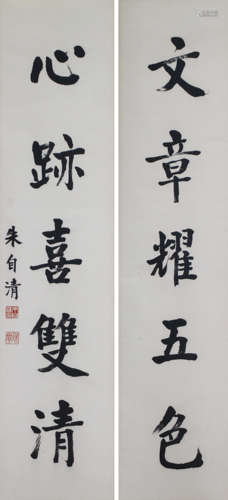 文章耀五色
心跡喜雙清
朱自清